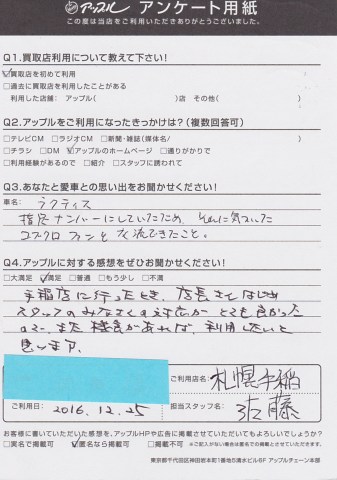 アップル アンケート用紙
この度は当店をご利用いただきありがとうございました。
Q1.買取店利用について教えて下さい!
☑買取店を初めて利用
□過去に買取店を利用したことがある
利用した店舗: アップル( )店 その他( )
Q2.アップルをご利用になったきっかけは?(複数回答可)
□テレビCM □ラジオCM □新聞・雑誌(媒体名/ )
□チラシ □DM ☑アップルのホームページ □通りがかりで
□利用経験があるので □紹介 □スタッフに誘われて
Q3.あなたと愛車との思い出をお聞かせください!
車名: ラクティス
指定ナンバーにしていたため、それに気づいた
コブクロファンと交流できたこと。
Q4.アップルに対する感想をぜひお聞かせください!
□大満足 ☑満足 □普通 □もう少し □不満
手稲店に行ったとき、店長さんはじめ
スタッフのみなさんの対応がとても良かった
ので、また機会があれば、利用したいと
思います。
ご利用店名: 札幌手稲
ご利用日: 2016.12.25
担当スタッフ名: 佐藤
お客様に書いていただいた感想を、アップルHPや広告に掲載させていただいてもよろしいでしょうか?
□実名で掲載可 ☑匿名なら掲載可 □掲載不可 ※ご記入がない場合は匿名での掲載とさせていただきます。
東京都千代田区神田岩本町1番地5清水ビル6F アップルチェーン本部